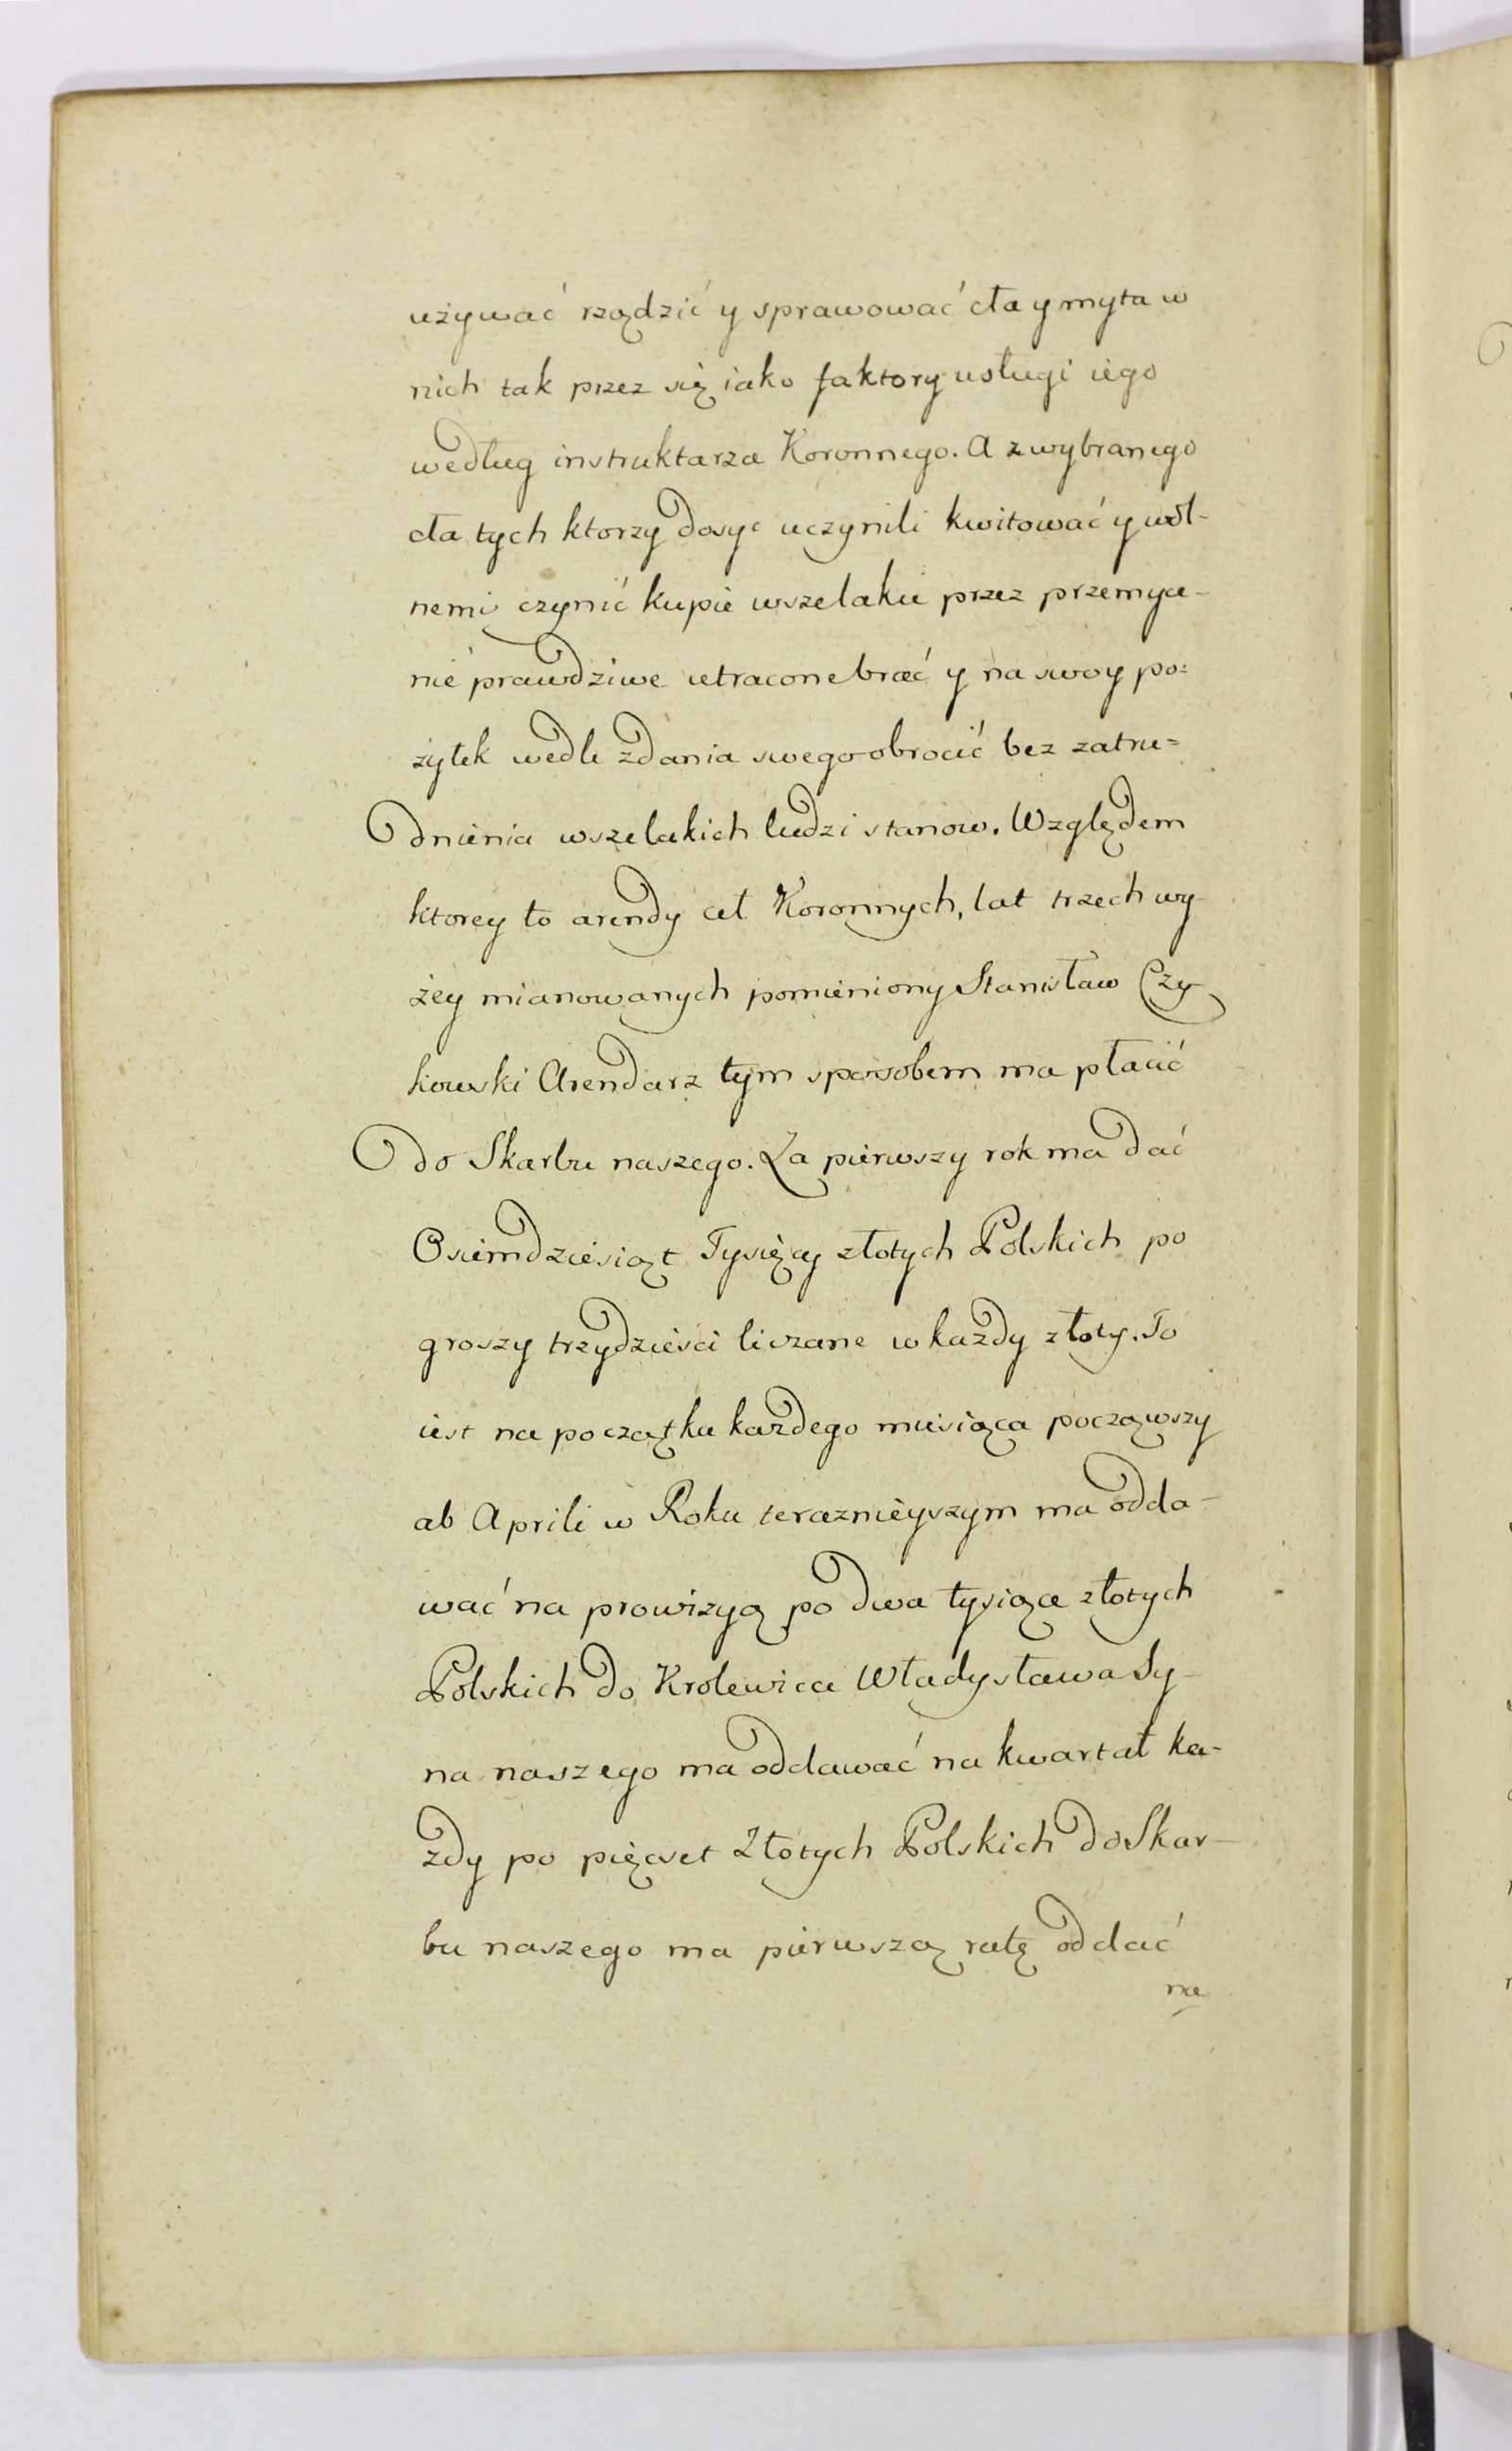 używać rządzić y sprawować cła y myta w
nich tak przez się iako faktory usługi iego
według instruktarza Koronnego. A z wybranego
cła tych ktorzy dosyc uczynili kwitować y wol-
nemi czynić kupie wszelakie przez przemyca-
nie prawdziwe utracone brać y na swoy po=
żytek wedle zdania swego obrocić bez zatru=
dnienia wszelakich ludzi stanow. Względem
ktorey to arendy ceł Koronnych, lat trzech wy-
żey mianowanych pomieniony Stanisław Czy-
kowski Arendarz tym sposobem ma płacić
do Skarbu naszego. Za pierwszy rok ma dać
Osiemdziesiąt Tysięcy złotych Polskich po
groszy trzydzieści liczane w każdy złoty. To
iest na początku każdego miesiąca począwszy
ab Aprili w Roku teraznieyszym ma odda-
wać na prowizyą po dwa tysiąca złotych
Polskich do Krolewica Władysława Sy-
na naszego ma oddawać na kwartał ka-
żdy po pięcset Złotych Polskich do Skar-
bu naszego ma pierwszą ratę oddać
na